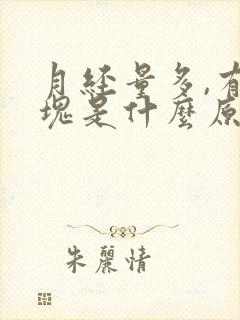 月經量多,有
塊是什麼原
朱麗情